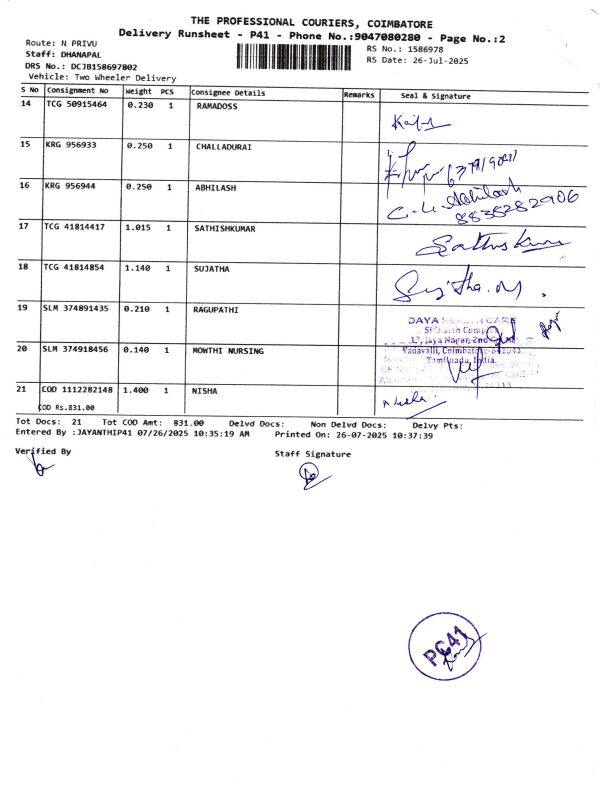 THE PROFESSIONAL COURIERS, COIMBATORE
Delivery Runsheet - P41 - Phone No.:9047080280 - Page No.:2
Route: N PRIVU
RS No.: 1586978
Staff: DHANAPAL
RS Date: 26-Jul-2025
DRS No.: DCJB158697802
Vehicle: Two Wheeler Delivery
S No Consignment No Weight PCS Consignee Details Remarks Seal & Signature
14 TCG 50915464 0.230 1 RAMADOSS
15 KRG 956933 0.250 1 CHALLADURAI
16 KRG 956944 0.250 1 ABHILASH
C.U. Abhilash
8838282906
17 TCG 41814417 1.015 1 SATHISHKUMAR
18 TCG 41814854 1.140 1 SUJATHA
Sujatha.M.
19 SLM 374891435 0.210 1 RAGUPATHI
DAYA HEALTH CARE
13, Jaya Nagar, 2nd
20 SLM 374918456 0.140 1 MOWTHI NURSING
Vadavalli, Coimbatore-641041
Tamilnadu, India.
21 COD 1112282148 1.400 1 NISHA
Nisha.
COD Rs.831.00
Tot Docs: 21 Tot COD Amt: 831.00 Delvd Docs: Non Delvd Docs: Delvy Pts:
Entered By :JAYANTHIP41 07/26/2025 10:35:19 AM Printed On: 26-07-2025 10:37:39
Verified By
Staff Signature
PC41